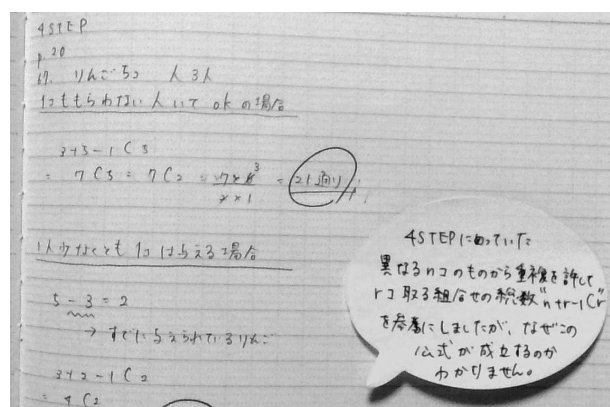 4STEP
p.20
67. りんご5コ 人3人
1コももらわない人いて okの場合
3+5-1 C 5
= 7 C 5 = 7 C 2 = 7×6 3 / 2×1 = 21通り
1人少なくとも 1コは与える場合
5 - 3 = 2
→ すでに与えられているりんご
3+2-1 C 2
= 4 C 2
4STEPにのっていた
異なるnコのものから重複を許して
rコ取る組合せの総数"n+r-1Cr"
を参考にしましたが、なぜこの
公式が成立するのか
わかりません。